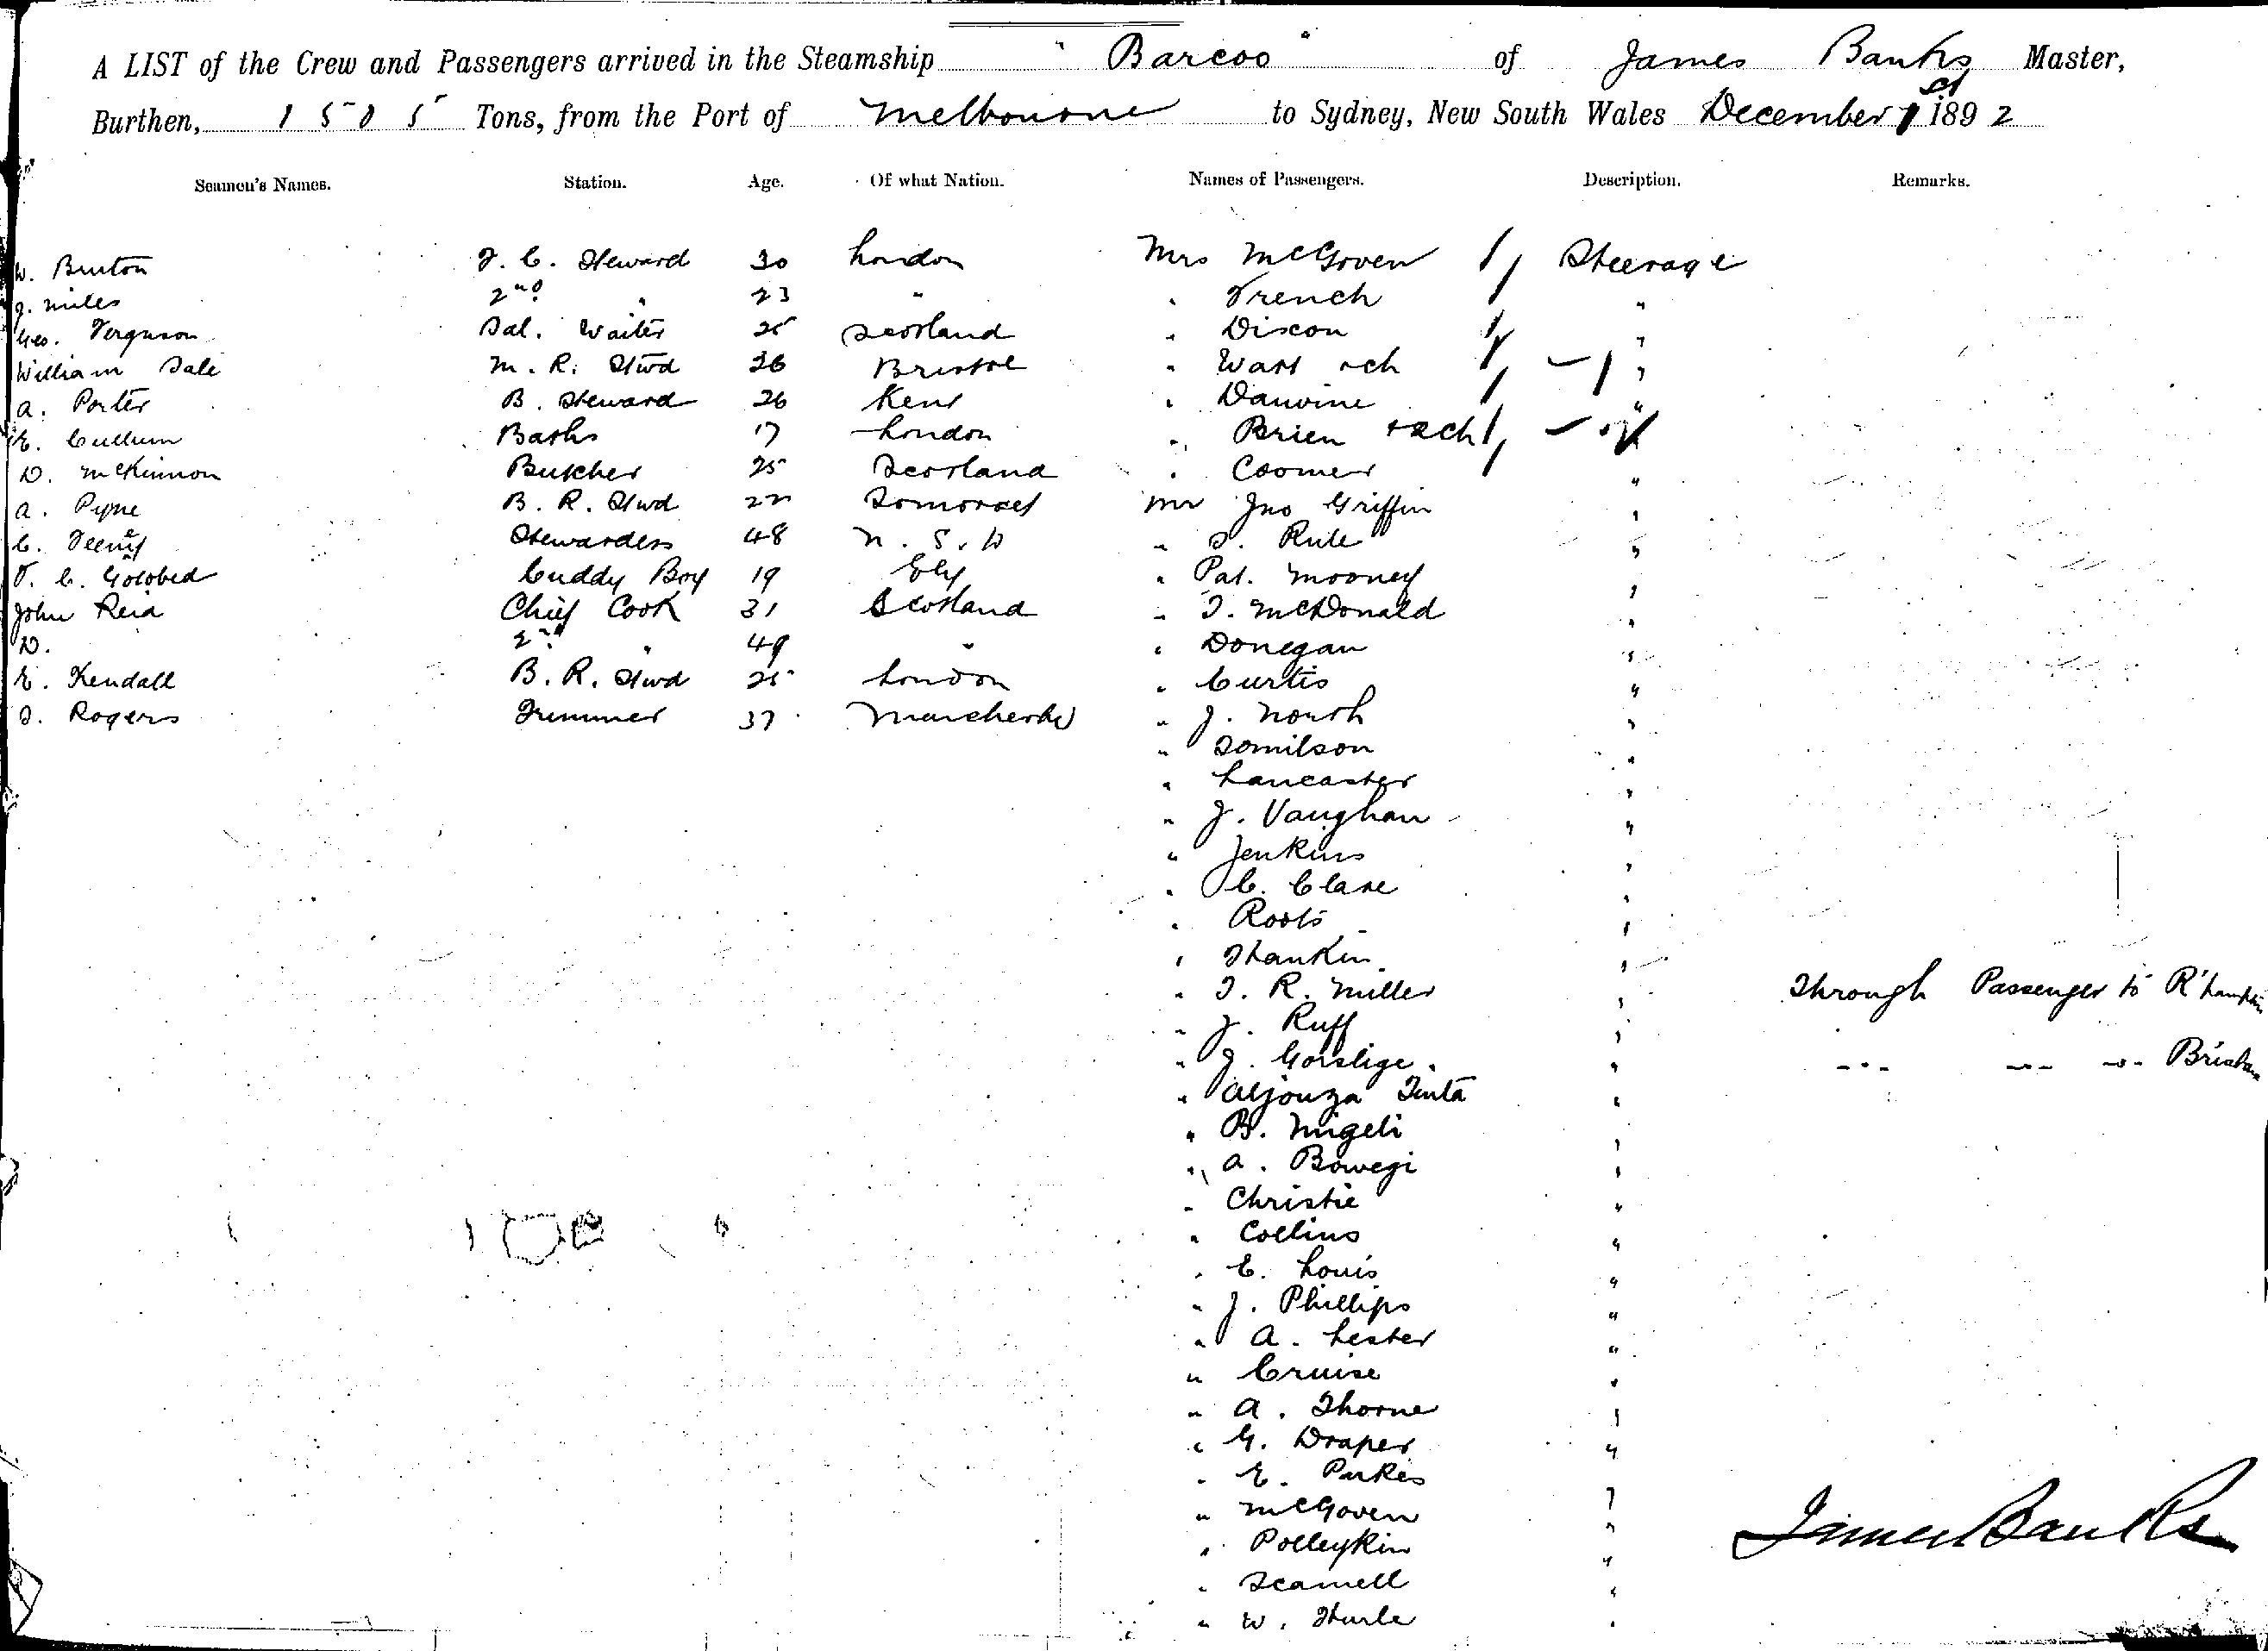 A LIST of the Crew and Passengers arrived in the Steamship "Barcoo" of James Banks Master,
Burthen, 1505 Tons, from the Port of Melbourne to Sydney, New South Wales December 1st 1892
Seamen's Names. Station. Age. Of what Nation. Names of Passengers. Description. Remarks.
W. Bruton F. C. Steward 30 London Mrs McGoven 1 Steerage
J. Miles 2nd " 23 " " French "
Geo. Ferguson Sal. Waiter 25 Scotland " Dixon 1 "
William Dale M. R. Stwd 26 Bristol " Watt + ch 1 – 1 "
A. Porter B. Steward 26 Kent " Dauvine 1 "
E. Cullum Baths 17 London " Brien + 2ch 1 – "
D. McKinnon Butcher 25 Scotland " Coomer "
A. Pyne B. R. Stwd 22 Somerset Mr Jno Griffin "
C. Stewardess 48 N. S. W " S. Rule "
F. C. Golobed Cuddy Boy 19 Ely " Pat. Mooney "
John Reid Chief Cook 31 Scotland " T. McDonald "
D. 2nd " 49 " " Donegan "
E. Kendall B. R. Stwd 25 London " Curtis "
T. Rogers Trimmer 37 Manchester " J. North "
" Tomilson "
" Lancaster "
" J. Vaughan "
" Jenkins "
" C. Clare "
" Roots "
" Thankin "
" T. R. Miller " Through Passenger to R'hampton
" J. Ruff "
" J. " – " – – " – – " – Brisbane
" Aljouza Tinta "
" B. Migeli "
" A. Bowegi "
" Christie "
" Collins "
" E. Louis "
" J. Phillips "
" A. Lester "
" Cruise "
" A. Thorne "
" G. Draper "
" E. Parkes "
" McGoven "
" Polleykin "
" Scamell "
" W. Hurle "
James Banks